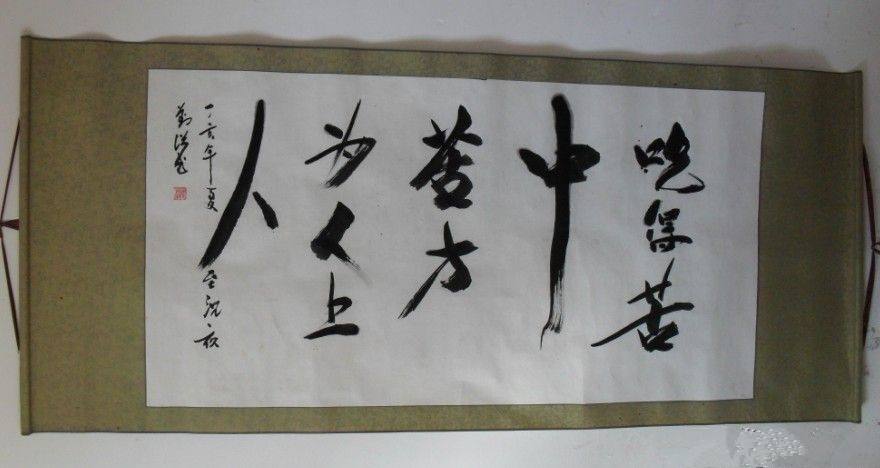 吃得苦
中
苦方
为人上
人
六年夏